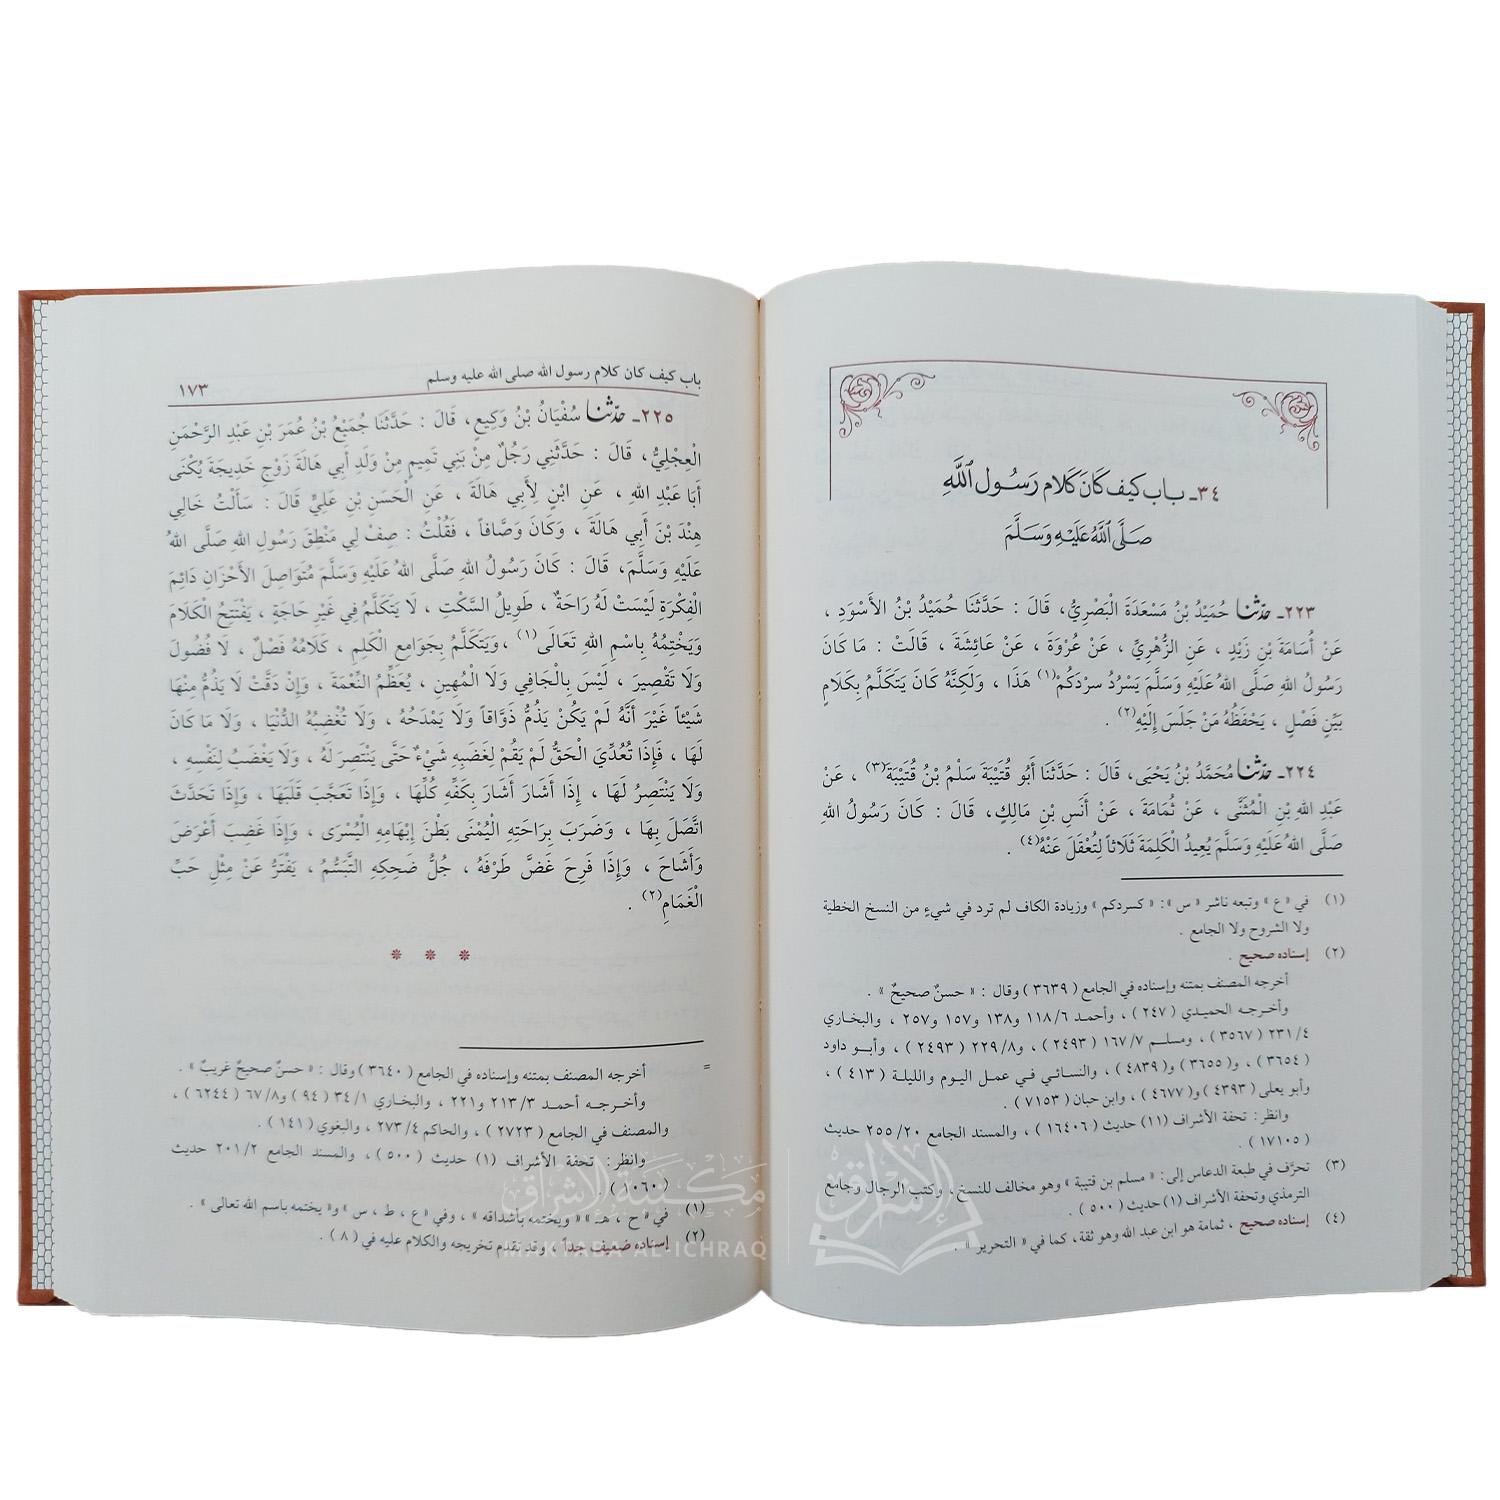 ٣٤ـ باب كيف كان كلام رسول الله
صلى الله عليه وسلم
٢٢٣ـ حدّثنا حُمَيْدُ بْنُ مَسْعَدَةَ الْبَصْرِيُّ، قَالَ : حَدَّثَنَا حُمَيْدُ بْنُ الأَسْوَدِ ،
عَنْ أُسَامَةَ بْنِ زَيْدٍ ، عَنِ الزُّهْرِيِّ ، عَنْ عُرْوَةَ ، عَنْ عَائِشَةَ ، قَالَتْ : مَا كَانَ
رَسُولُ اللهِ صَلَّى اللهُ عَلَيْهِ وَسَلَّمَ يَسْرُدُ سردَكُمْ(١) هَذَا ، وَلَكِنَّهُ كَانَ يَتَكَلَّمُ بِكَلَامٍ
بَيِّنٍ فَصْلٍ ، يَحْفَظُهُ مَنْ جَلَسَ إِلَيْهِ(٢) .
٢٢٤ـ حدّثنا مُحَمَّدُ بْنُ يَحْيَى، قَالَ : حَدَّثَنَا أَبُو قُتَيْبَةَ سَلْمُ بْنُ قُتَيْبَةَ(٣) ، عَنْ
عَبْدِ اللهِ بْنِ الْمُثَنَّى ، عَنْ ثُمَامَةَ ، عَنْ أَنَسِ بْنِ مَالِكٍ، قَالَ : كَانَ رَسُولُ اللهِ
صَلَّى اللهُ عَلَيْهِ وَسَلَّمَ يُعِيدُ الْكَلِمَةَ ثَلَاثاً لِتُعْقَلَ عَنْهُ(٤) .
(١) في « ع » وتبعه ناشر « س » : « كسردكم » وزيادة الكاف لم ترد في شيءٍ من النسخ الخطية
ولا الشروح ولا الجامع .
(٢) إسناده صحيح .
أخرجه المصنف بمتنه وإسناده في الجامع ( ٣٦٣٩ ) وقال : « حسنٌ صحيحٌ » .
وأخرجه الحميدي ( ٢٤٧ ) ، وأحمد ١١٨/٦ و١٣٨ و١٥٧ و٢٥٧ ، والبخاري
٢٣١/٤ ( ٣٥٦٧ ) ، ومسلم ١٦٧/٧ ( ٢٤٩٣ ) ، و٢٢٩/٨ ( ٢٤٩٣ ) ، وأبو داود
( ٣٦٥٤ ) ، و( ٣٦٥٥ ) و( ٤٨٣٩ ) ، والنسائي في عمل اليوم والليلة ( ٤١٣ ) ،
وأبو يعلى ( ٤٣٩٣ ) و( ٤٦٧٧ ) ، وابن حبان ( ٧١٥٣ ) .
وانظر : تحفة الأشراف (١١) حديث ( ١٦٤٠٦ ) ، والمسند الجامع ٢٥٥/٢٠ حديث
( ١٧١٠٥ ) .
(٣) تحرَّف في طبعة الدعاس إلى: « مسلم بن قتيبة » وهو مخالف للنسخ، وكتب الرجال وجامع
الترمذي وتحفة الأشراف (١) حديث ( ٥٠٠ ) .
(٤) إسناده صحيح ، ثمامة هو ابن عبد الله وهو ثقة، كما في « التحرير » . =
باب كيف كان كلام رسول الله صلى الله عليه وسلم ١٧٣
٢٢٥ـ حدّثنا سُفْيَانُ بْنُ وَكِيعٍ، قَالَ : حَدَّثَنَا جُمَيْعُ بْنُ عُمَرَ بْنِ عَبْدِ الرَّحْمَنِ
الْعِجْلِيُّ، قَالَ : حَدَّثَنِي رَجُلٌ مِنْ بَنِي تَمِيمٍ مِنْ وَلَدِ أَبِي هَالَةَ زَوْجِ خَدِيجَةَ يُكْنَى
أَبَا عَبْدِ اللهِ ، عَنِ ابْنٍ لِأَبِي هَالَةَ ، عَنِ الْحَسَنِ بْنِ عَلِيٍّ قَالَ : سَأَلْتُ خَالِي
هِنْدَ بْنَ أَبِي هَالَةَ ، وَكَانَ وَصَّافاً ، فَقُلْتُ : صِفْ لِي مَنْطِقَ رَسُولِ اللهِ صَلَّى اللهُ
عَلَيْهِ وَسَلَّمَ، قَالَ : كَانَ رَسُولُ اللهِ صَلَّى اللهُ عَلَيْهِ وَسَلَّمَ مُتَوَاصِلَ الأَحْزَانِ دَائِمَ
الْفِكْرَةِ لَيْسَتْ لَهُ رَاحَةٌ ، طَوِيلُ السَّكْتِ ، لَا يَتَكَلَّمُ فِي غَيْرِ حَاجَةٍ ، يَفْتَتِحُ الْكَلَامَ
وَيَخْتِمُهُ بِاسْمِ اللهِ تَعَالَى(١) ، وَيَتَكَلَّمُ بِجَوَامِعِ الْكَلِمِ ، كَلَامُهُ فَصْلٌ ، لَا فُضُولَ
وَلَا تَقْصِيرَ ، لَيْسَ بِالْجَافِي وَلَا الْمُهِينِ ، يُعَظِّمُ النِّعْمَةَ ، وَإِنْ دَقَّتْ لَا يَذُمُّ مِنْهَا
شَيْئاً غَيْرَ أَنَّهُ لَمْ يَكُنْ يَذُمُّ ذَوَّاقاً وَلَا يَمْدَحُهُ ، وَلَا تُغْضِبُهُ الدُّنْيَا ، وَلَا مَا كَانَ
لَهَا ، فَإِذَا تُعُدِّيَ الْحَقُّ لَمْ يَقُمْ لِغَضَبِهِ شَيْءٌ حَتَّى يَنْتَصِرَ لَهُ ، وَلَا يَغْضَبُ لِنَفْسِهِ ،
وَلَا يَنْتَصِرُ لَهَا ، إِذَا أَشَارَ أَشَارَ بِكَفِّهِ كُلِّهَا ، وَإِذَا تَعَجَّبَ قَلَبَهَا ، وَإِذَا تَحَدَّثَ
اتَّصَلَ بِهَا ، وَضَرَبَ بِرَاحَتِهِ الْيُمْنَى بَطْنَ إِبْهَامِهِ الْيُسْرَى ، وَإِذَا غَضِبَ أَعْرَضَ
وَأَشَاحَ ، وَإِذَا فَرِحَ غَضَّ طَرْفَهُ ، جُلُّ ضَحِكِهِ التَّبَسُّمُ ، يَفْتَرُّ عَنْ مِثْلِ حَبِّ
الْغَمَامِ(٢) .
= أخرجه المصنف بمتنه وإسناده في الجامع ( ٣٦٤٠ ) وقال : « حسنٌ صحيحٌ غريبٌ » .
وأخرجه أحمد ٢١٣/٣ و٢٢١ ، والبخاري ٣٤/١ ( ٩٤ ) و٦٧/٨ ( ٦٢٤٤ ) ،
والمصنف في الجامع ( ٢٧٢٣ ) ، والحاكم ٢٧٣/٤ ، والبغوي ( ١٤١ ) .
وانظر : تحفة الأشراف (١) حديث ( ٥٠٠ ) ، والمسند الجامع ٢٠١/٢ حديث
( ١٠٦٠ ) .
(١) في « ح ، هـ » « ويختمه بأشداقه » ، وفي « ع ، ط ، س » و« يختمه باسم الله تعالى » .
(٢) إسناده ضعيف جداً ، وقد تقدم تخريجه والكلام عليه في ( ٨ ) .
مكتبة الإشراق
MAKTABA AL-ICHRAQ
الإشراق